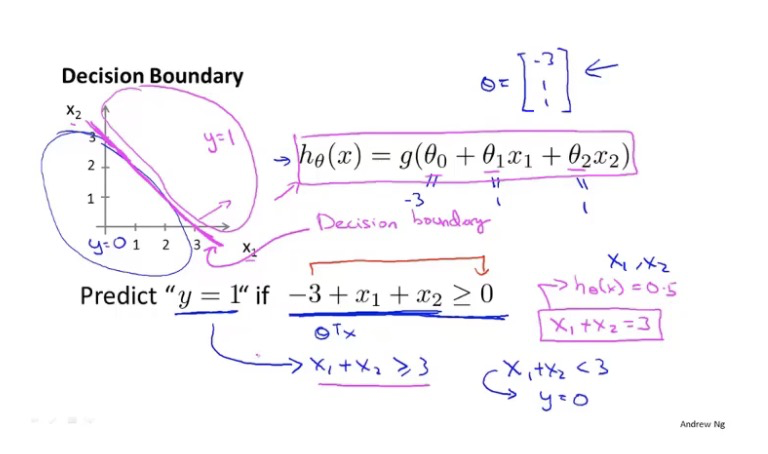 Decision Boundary
θ = [-3 1 1]
x₂
3
2
1
y=1
y=0 1 2 3 x₁
hθ(x) = g(θ₀ + θ₁x₁ + θ₂x₂)
-3 1 1
Decision boundary
Predict "y = 1" if -3 + x₁ + x₂ ≥ 0
θᵀx
x₁ + x₂ ≥ 3
x₁, x₂
hθ(x) = 0.5
x₁ + x₂ = 3
x₁ + x₂ < 3
y = 0
Andrew Ng